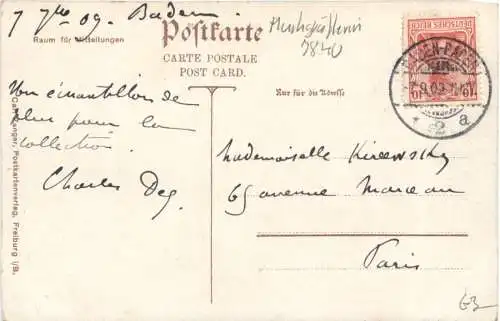 7 7bre 09. Baden
Postkarte
Raum für Mitteilungen
CARTE POSTALE
POST CARD.
3840
Nur für die Adresse
DEUTSCHES REICH
10 10
BADEN-BADEN
9.09
* 2 a
Un échantillon de
plus pour la
collection.
Charles Deg.
Mademoiselle Kireewsky
65 avenue Marceau
Paris
Postkartenverlag, Freiburg i/B.
63